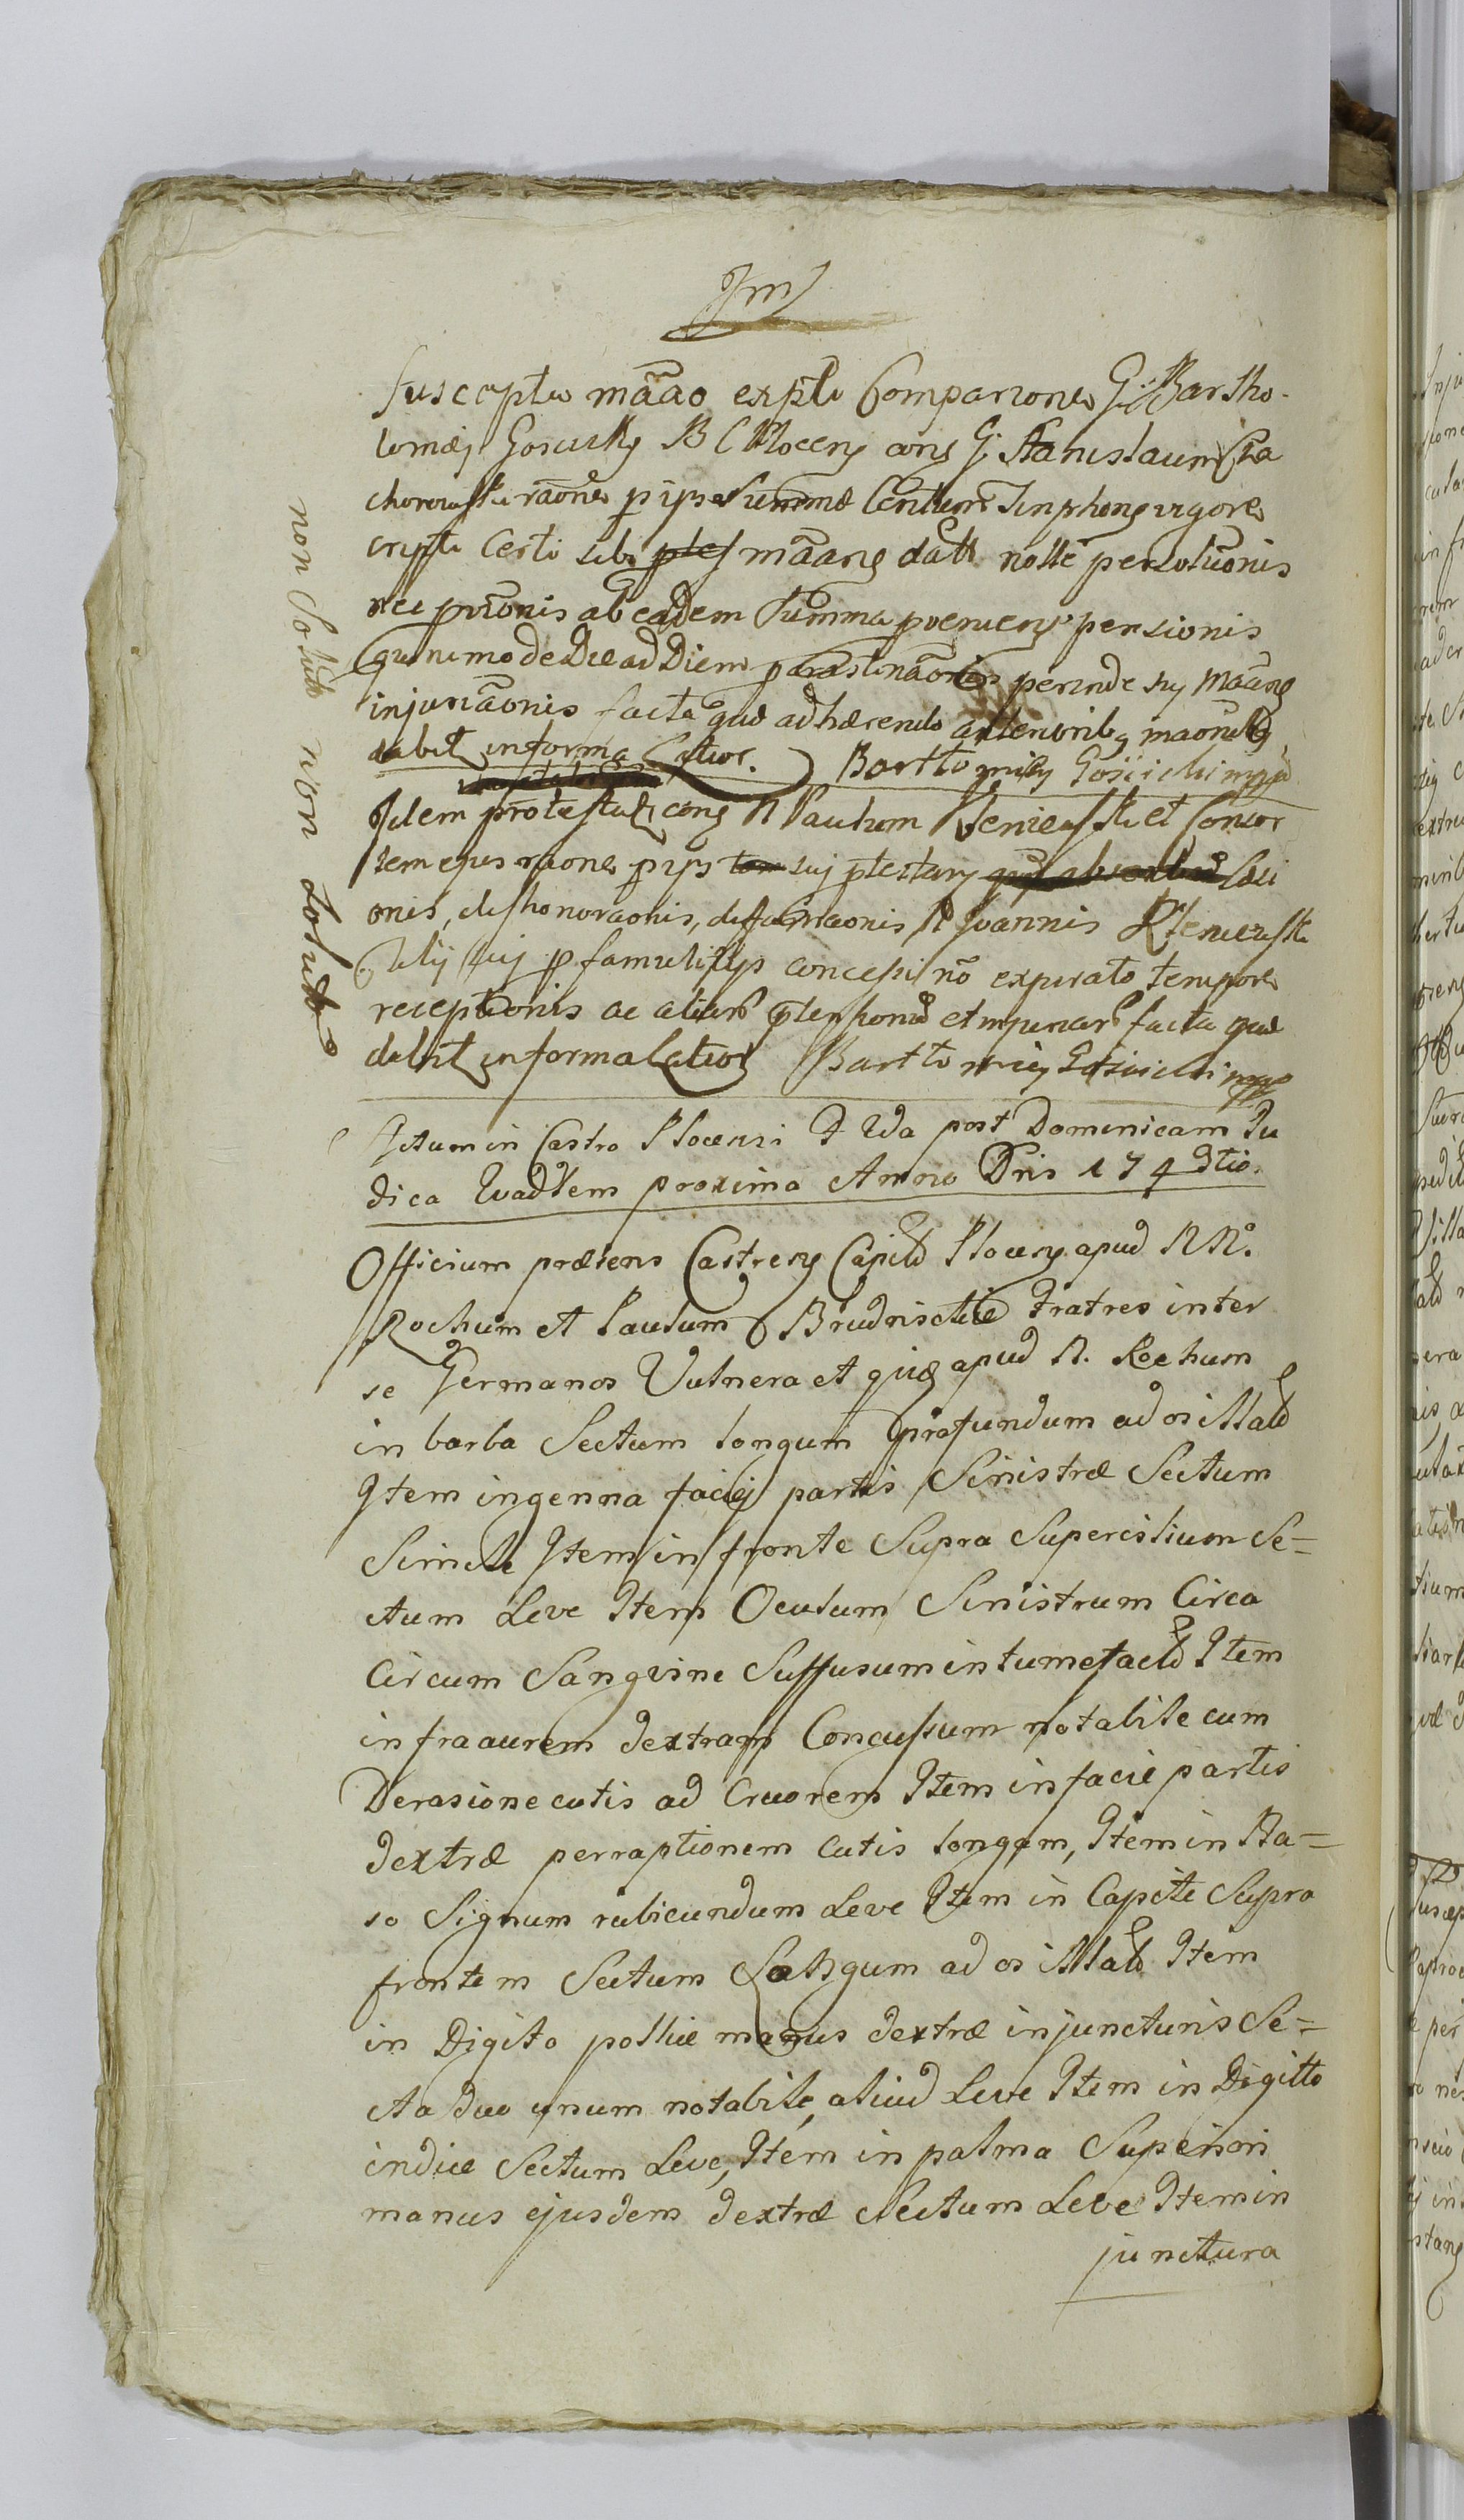 Jm
Suscepta mãao expti Comparione G: Bartho-
lomæj Goscicky B C Plocen cong G: Stanislaum Cza
chorowski raone p ips Summæ Centum Tinph vigore
cripti Certi sibi mãang datt nolle persolutionis
nec provonis ab eadem Summa provenien pensionis
quinimo de Die ad Diem perinde suj Mãang
injuriãonis facta quæ adhærendo anterioribq maonibq
dabit informa latior. Barttomiey Gościcki mpp
Idem protestatur cong N Paulum et Consor
tem ejus raone p ips suj ptestan Lœsi
onis, deshonoraonis, diffamaonis N Joannis
filij suj p famulitijs concessi nõ expirato tempore
receptionis ac aliar et injuriar facta quæ
dabit informa latior Barttomiey Gościcki mpp
Actum in Castro Plocensi F IIda post Dominicam Ju
dica Quadlem proxima Anno Dni 174 3tio.
Officium præsens Castrens Capitl Plocens apud NN.
Rochum et Paulum Brudnickie Fratres inter
se Germanos Vulnera et quid apud N. Rochum
in barba Sectum longum profundum ad os illatt
Item in genna faciej partis Sinistræ Sectum
Simile Item in fronte Supra Supercilium Se=
ctum Leve Item Oculum Sinistrum Circa
Circum Sangvine Suffusum intumefactt Item
infra aurem dextram Concussum notabile cum
Derasione cutis ad Cruorem Item in facie partis
dextræ perraptionem Cutis longam, Item in Na=
so Signum rubicundum Leve Item in Capite Supra
frontem Sectum Longum ad os illatt Item
in Digito pollice manus dextræ in juncturis Se=
cta duo unum notabile, aliud Leve Item in Digitto
indice Sectum Leve, Item in palma Superiori
manus ejusdem dextræ Sectum Leve Item in
junctura
non Solutt non solutt